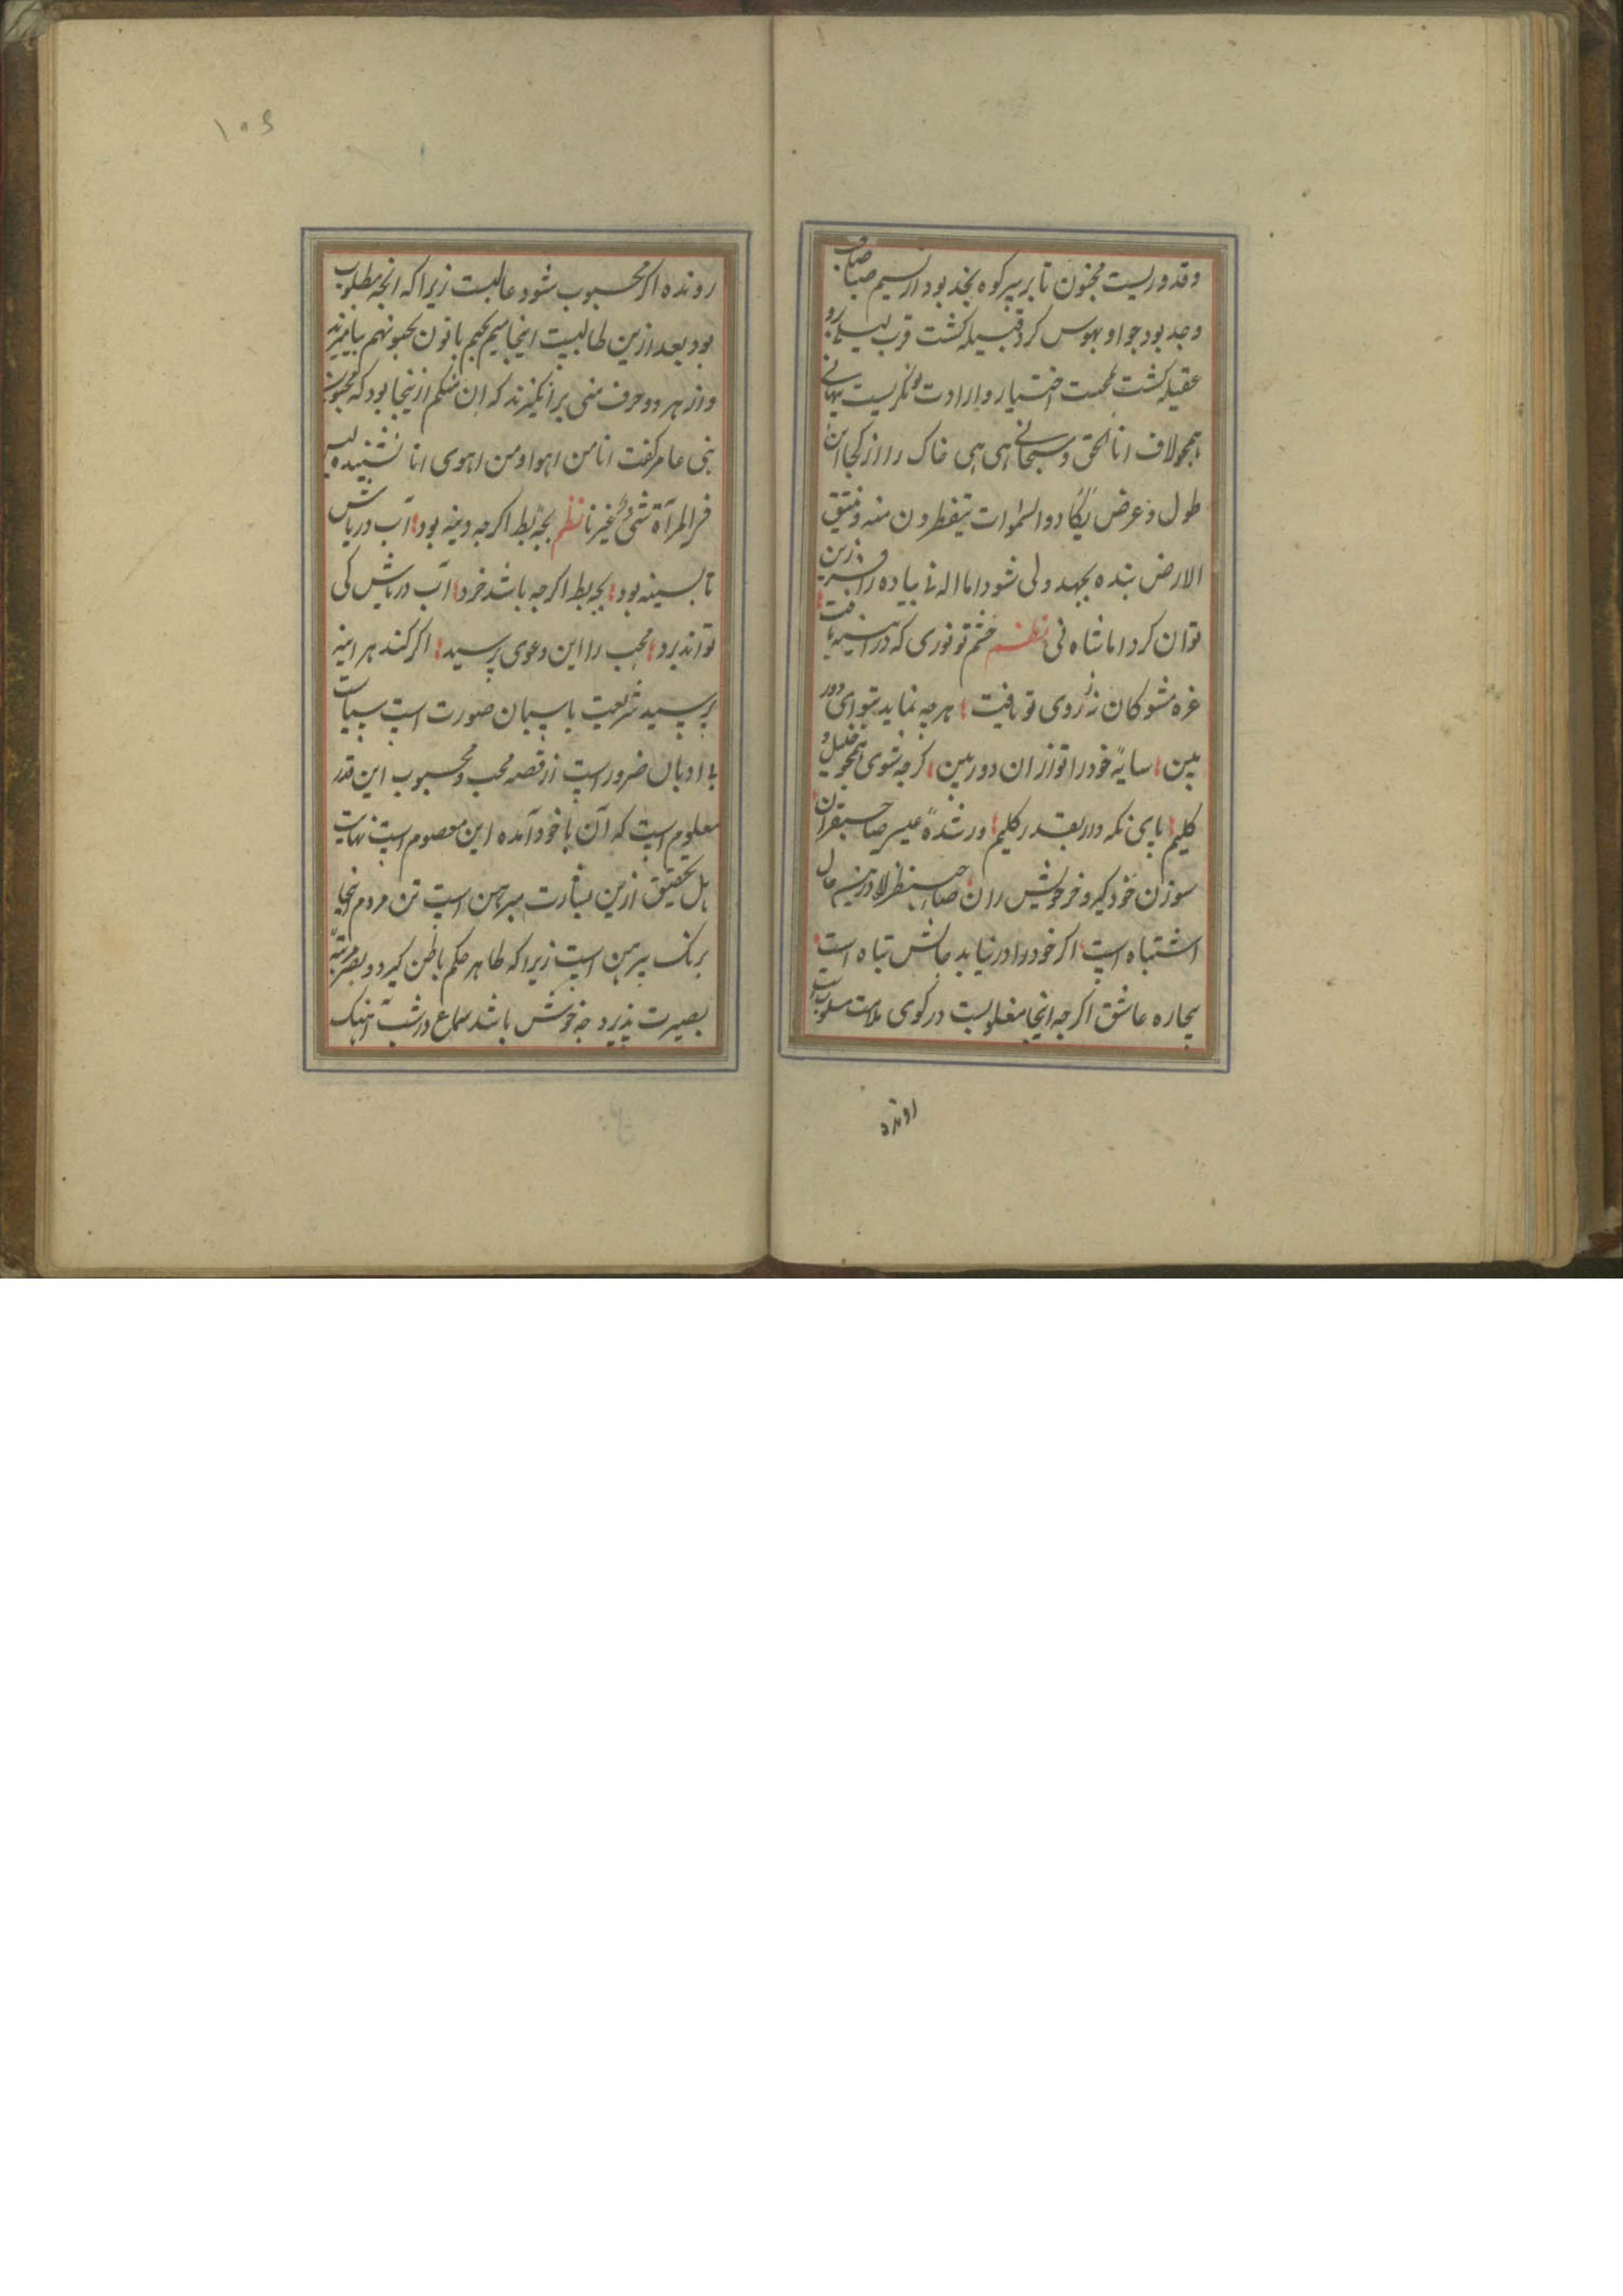 وقد وریست مجنون تا بر سر کوه نجد بود از نسیم صبا صاحب
وجد بود جو او بهوس کرد قبیله کشت قرب لیلی رو
عقیله کشت محبت اختیار و ارادت نکریست
همجو لاف انا الحق و سبحانی ای هی خاک را از کجا این
طول و عرض تکاد والسموات یتفطرون منه و تنشق
الارض بنده بجهد ولی شود اما اله نی بیاده را فرزین
توان کرد اما شاه نی نظم ختم تو نوری که در آیینه یافت
غره مشو کان نه ز روی تو تافت هرجه نماید بتو ای دور
بین سایهٔ خود را تو از ان دور بین کرجه شوی همجو خلیل و
کلیم بای نکه دار بقدر کلیم ور شدهٔ عیسی صاحبقران
سوزن خود کیر و خر خویش ران صاحب نظر لا در این حال
اشتباه است اکر خود را در نیابد حالش تباه است
بیجاره عاشق اکرجه انجا مغلوبست در کوی ملامت مسلوبست
رونده
۱۰۶
رونده اکر محبوب شود عالیست زیرا که انجه مطلوب
بود بعد ازین طالبیت اینجا میم یحبهم با نون یحبونهم بیامیزند
و از هر دو حرف منی برانکیزند که ان متکلم ازینجا بود که مجنون
بنی عامر کفت انا من اهوا و من اهوی انا نشنیده
فی المرآة شیئ غیرنا نظم بجهٔ بط اکرجه دینه بود آب دریاش
تا بسینه بود بجه بط اکرجه باشد خرد آب دریاش کی
تواند برد محب را این دعوی نرسید اکر کند هر اینه
بر سید شریعت باسبان صورت است سیاست
بی ادبان ضرور است از قصه محب و محبوب این قدر
معلوم است که آن با خود آمده این معصوم است نهایت
اهل تحقیق ازین بشارت بیرهن است تن مردم انجا
برنک بیرهن است زیرا که ظاهر حکم باطن کیرد و بصر مرتبهٔ
بصیرت بذیرد جه خوش باشد سماع در شب آهنک